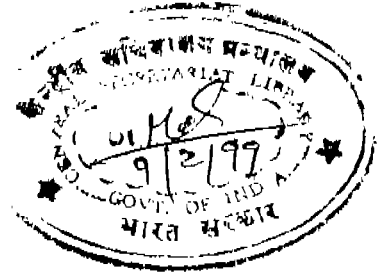 केन्द्रीय सचिवालय ग्रन्थालय
CENTRAL SECRETARIAT LIBRARY
9/2/99
GOVT. OF INDIA
भारत सरकार